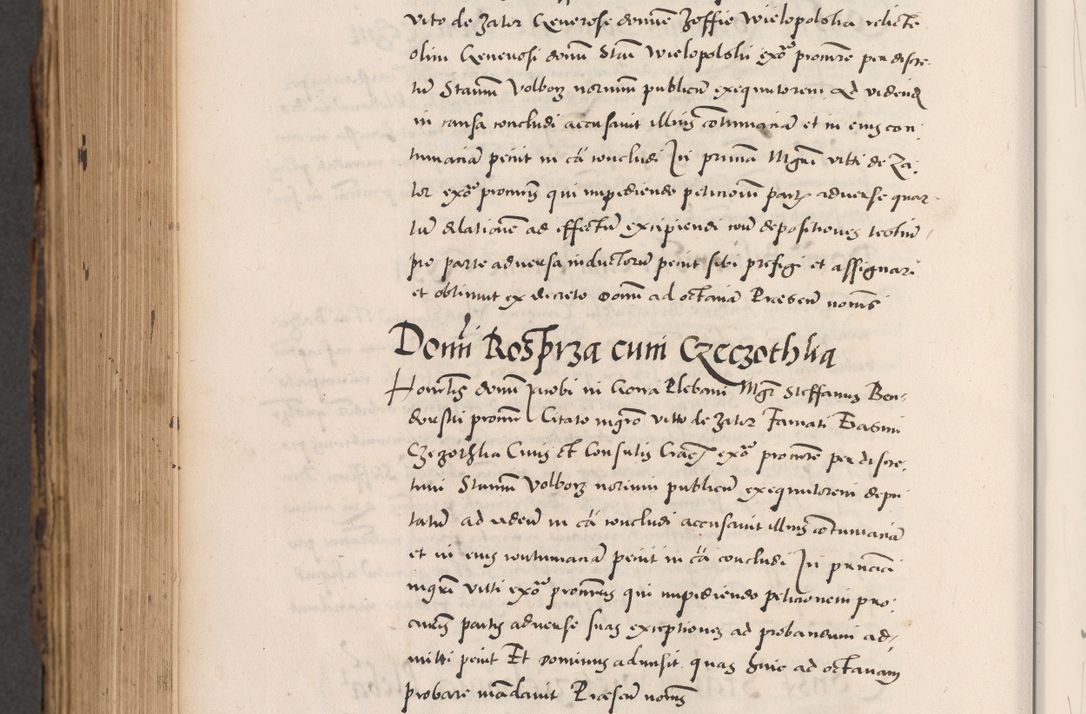 vito de Zator Generose domine Zoffie Wielopolska relicte
olim Generosi domini Stani Wielopolski ex̃o procuratore per discre-
tum Stanm Volborz norium publicum exequutorem ad videndum
in causa concludi accusavit illius cõtumaciã et in eius con-
tumaciã petiit in cã concludi In prima Mgri vitti de Za-
tor ex̃o procuris qui impediendo peticionem partis adverse quar-
tum dilationem ad effectum excipiendi con depositiones testium
pro parte adversa inductorum petiit sibi prefigi et assignari
et obtinuit ex decreto domi ad octavã Presen nomis
Domi Rosprza cum Czeczothka
Honlis domi Jacobi in Gora Plebani Mgr Steffanus Ben-
dorski procur Citato mgro vitto de Zator Famati Gasmi
Czeczothka Civis et Consulis Crac ex̃o procure per discre-
tum Stanm Volborz norium publicum exequutorem depu
tatum ad viden in cã concludi accusavit illius cõtumaciã
et in eius contumaciã petiit in cã concludi In prñcia
mgri Vitti ex̃o procuris qui impediendo peticionem pro-
curis partis adverse suas exceptiones ad probandum ad-
mitti petiit Et dominus admisit quas huic ad octavam
probare mãdavit Presen nomis